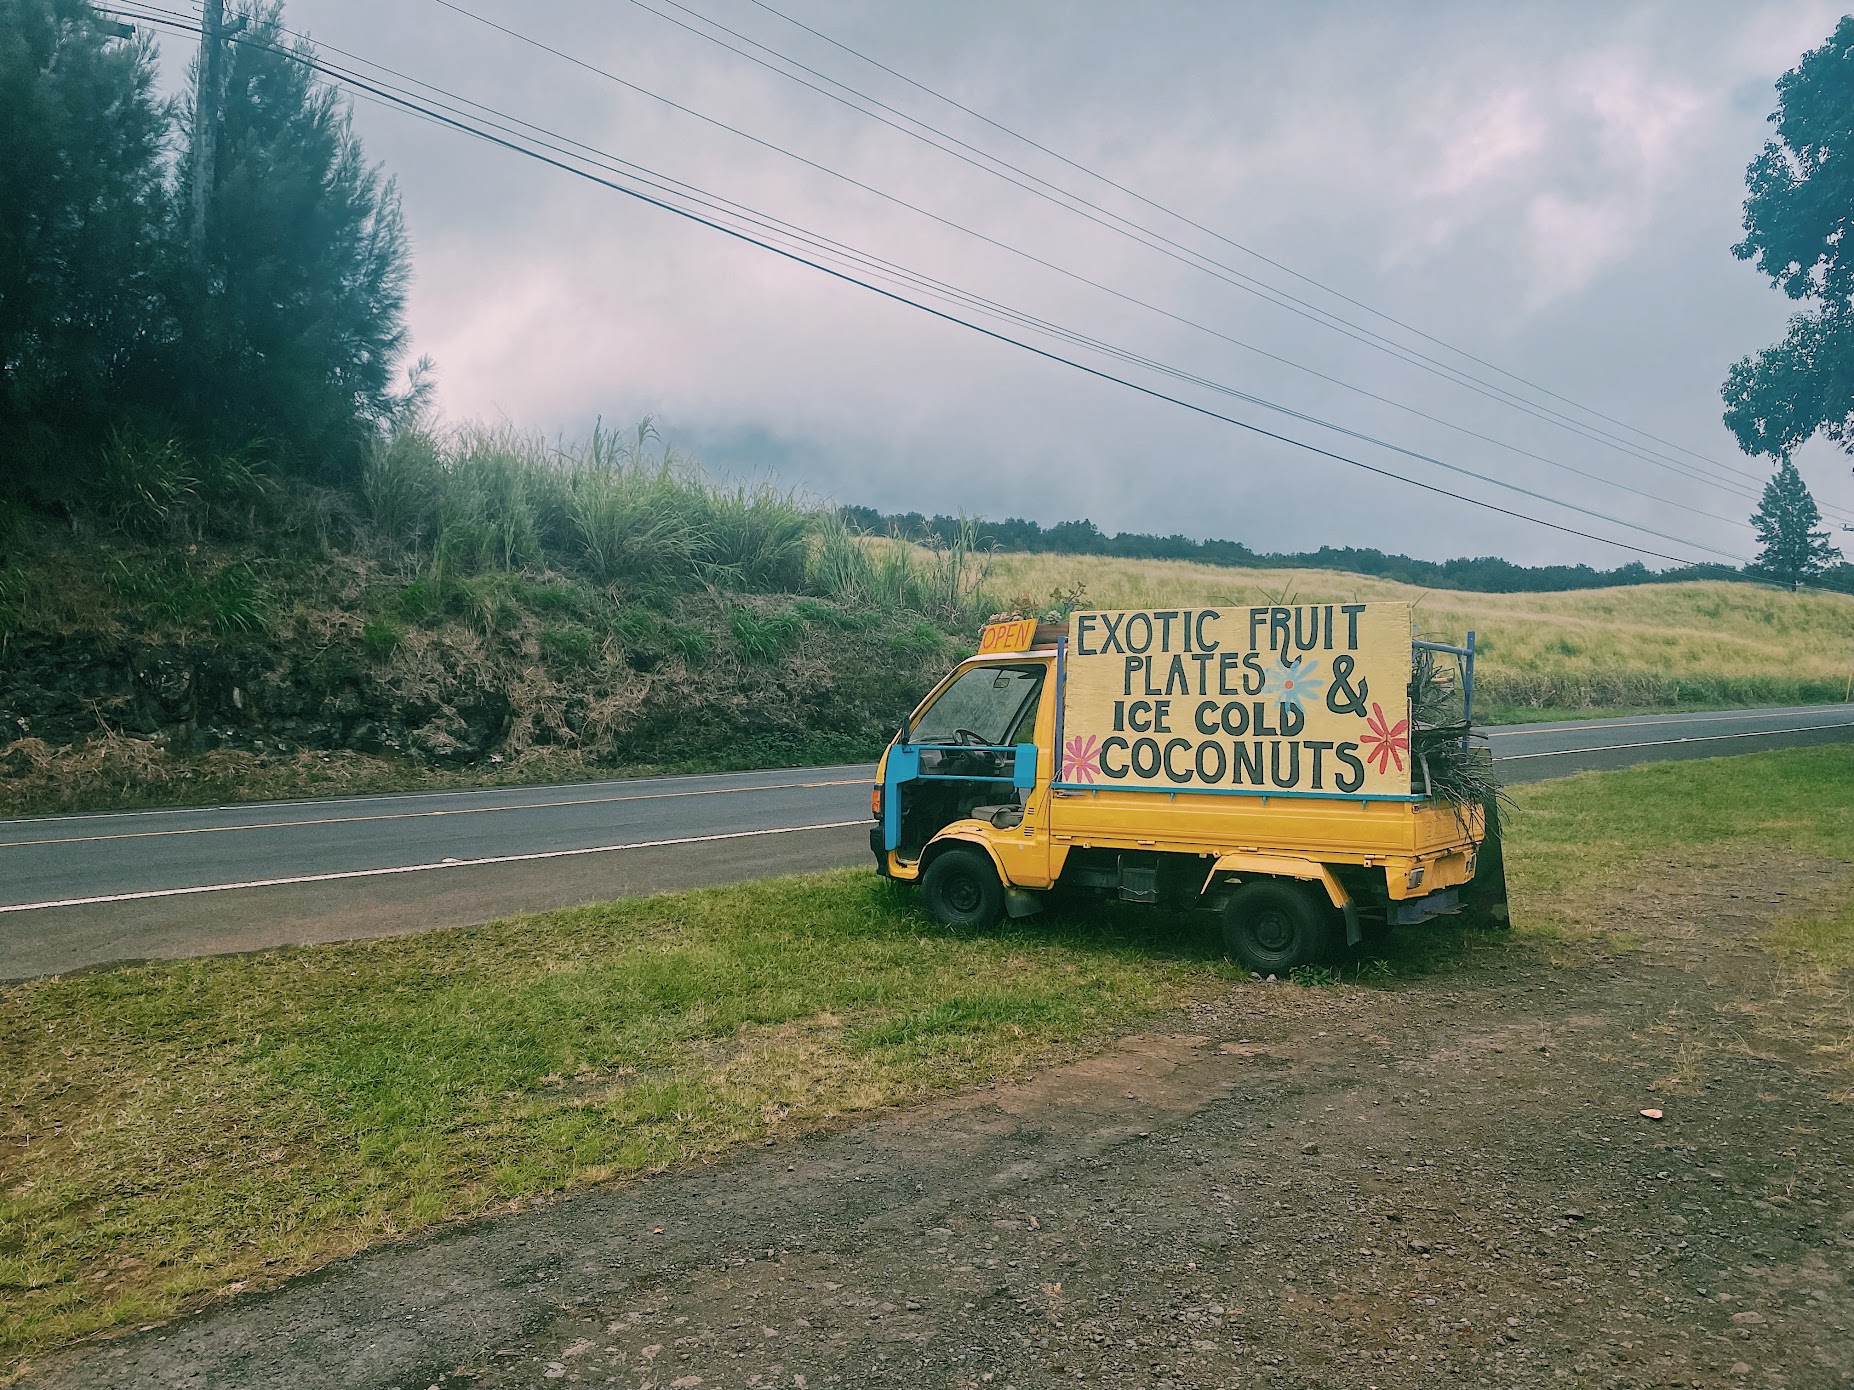 OPEN
EXOTIC FRUIT
PLATES &
ICE COLD
COCONUTS